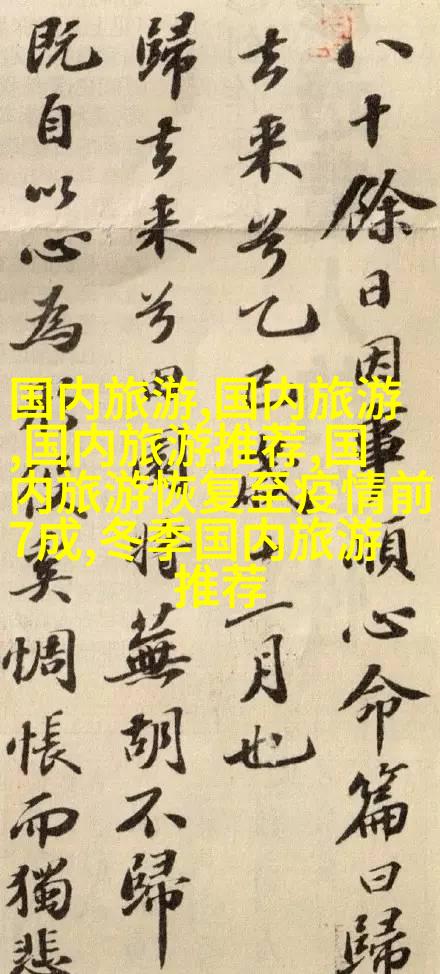 八十餘日因事順心命篇曰歸
去来兮乙巳歲十一月也
歸去来兮田園將蕪胡不歸
既自以心為形役奚惆悵而獨悲
国内旅游,国内旅游
,国内旅游推荐,国
内旅游恢复至疫情前
7成,冬季国内旅游
推荐